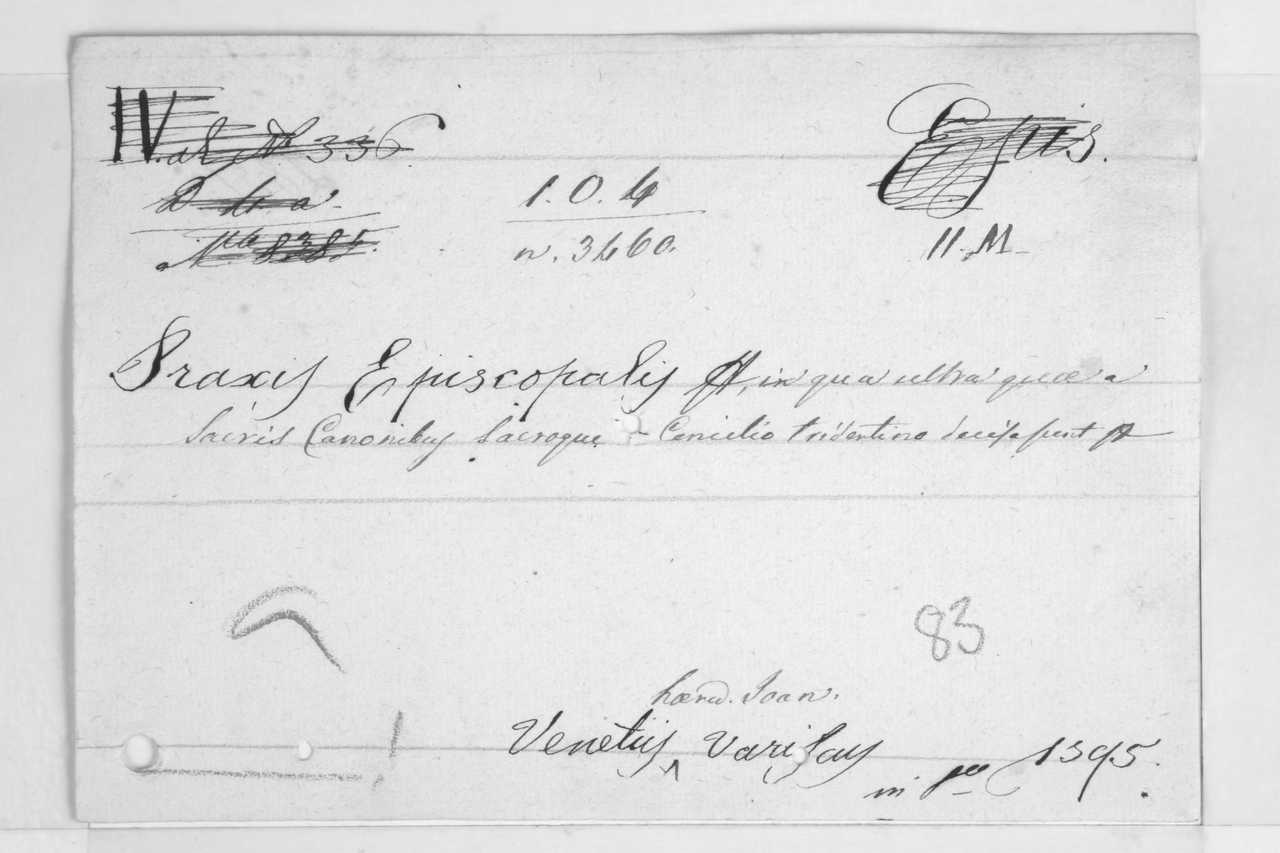 336
1. O. 4
n. 3460.
II. M
Praxis Episcopalis, in qua ultra quae a
Sacris Canonibus Sacroque Concilio tridentino decisa sunt
83
haered. Joan.
Venetiis Variscus
in 1595.